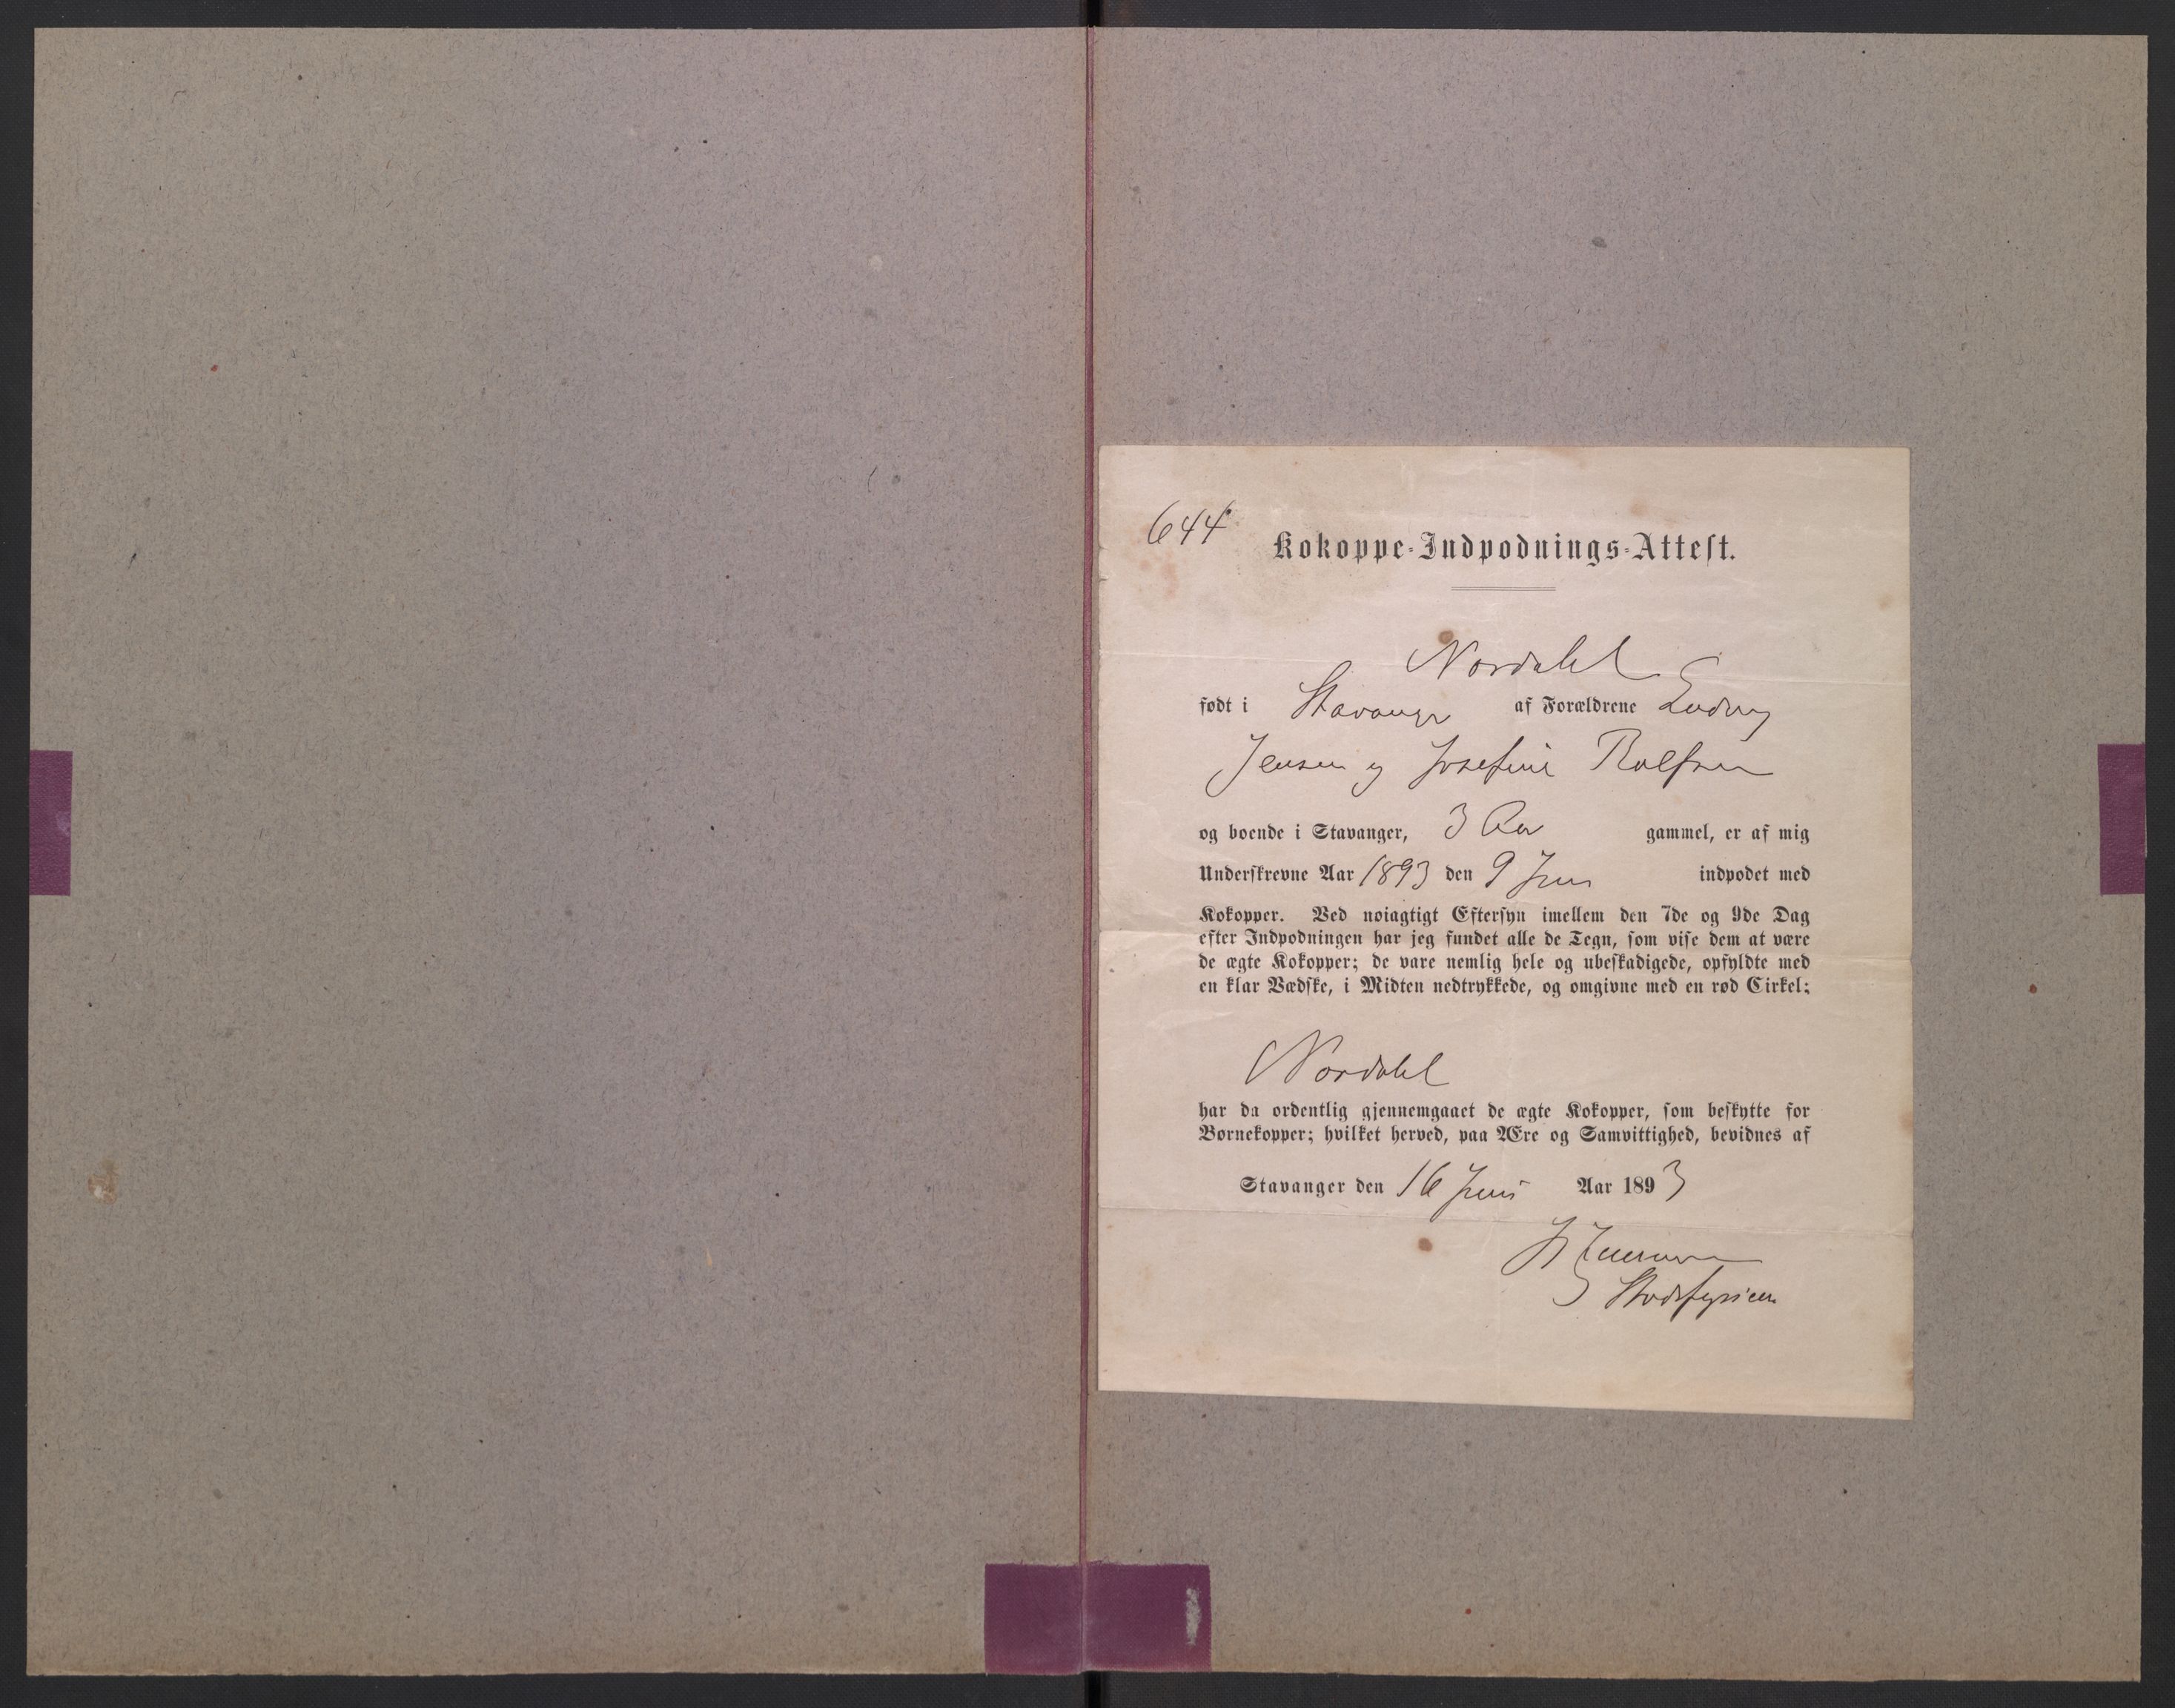 644
Kokoppe-Indpodnings-Attest.
Nordahl
født i Stavanger af Forældrene Ludvig
Jensen og Josefine Rolfsen
og boende i Stavanger, 3 Aar gammel, er af mig
Underskrevne Aar 1893 den 9 Juni indpodet med
Kokopper. Ved noiagtigt Eftersyn imellem den 7de og 9de Dag
efter Indpodningen har jeg fundet alle de Tegn, som vise dem at være
de ægte Kokopper; de vare nemlig hele og ubeskadigede, opfyldte med
en klar Vædske, i Midten nedtrykkede, og omgivne med en rød Cirkel;
Nordahl
har da ordentlig gjennemgaaet de ægte Kokopper, som beskytte for
Børnekopper; hvilket herved, paa Ære og Samvittighed, bevidnes af
Stavanger den 16 Juni Aar 1893
Stadsfysicus